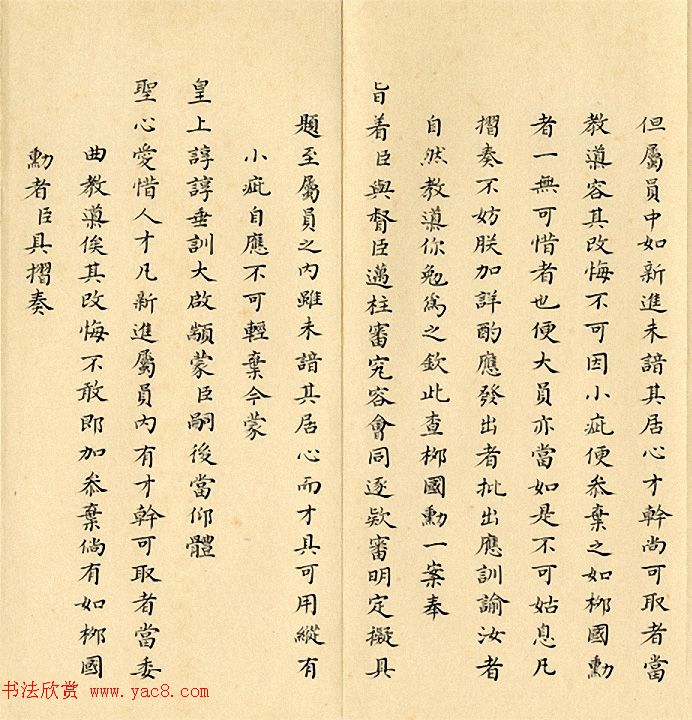 但屬員中如新進未諳其居心才幹尚可取者當
教導容其改悔不可因小疵便叅棄之如柳國勳
者一無可惜者也便大員亦當如是不可姑息凡
摺奏不妨朕加詳酌應發出者批出應訓諭汝者
自然教導你勉爲之欽此查柳國勳一案奉
旨着臣與督臣邁柱審究容會同逐欵審明定擬具
題至屬員之內雖未諳其居心而才具可用縱有
小疵自應不可輕棄今蒙
皇上諄諄垂訓大啟顓蒙臣嗣後當仰體
聖心愛惜人才凡新進屬員內有才幹可取者當委
曲教導俟其改悔不敢即加叅棄倘有如柳國
勳者臣具摺奏
书法欣赏 www.yac8.com